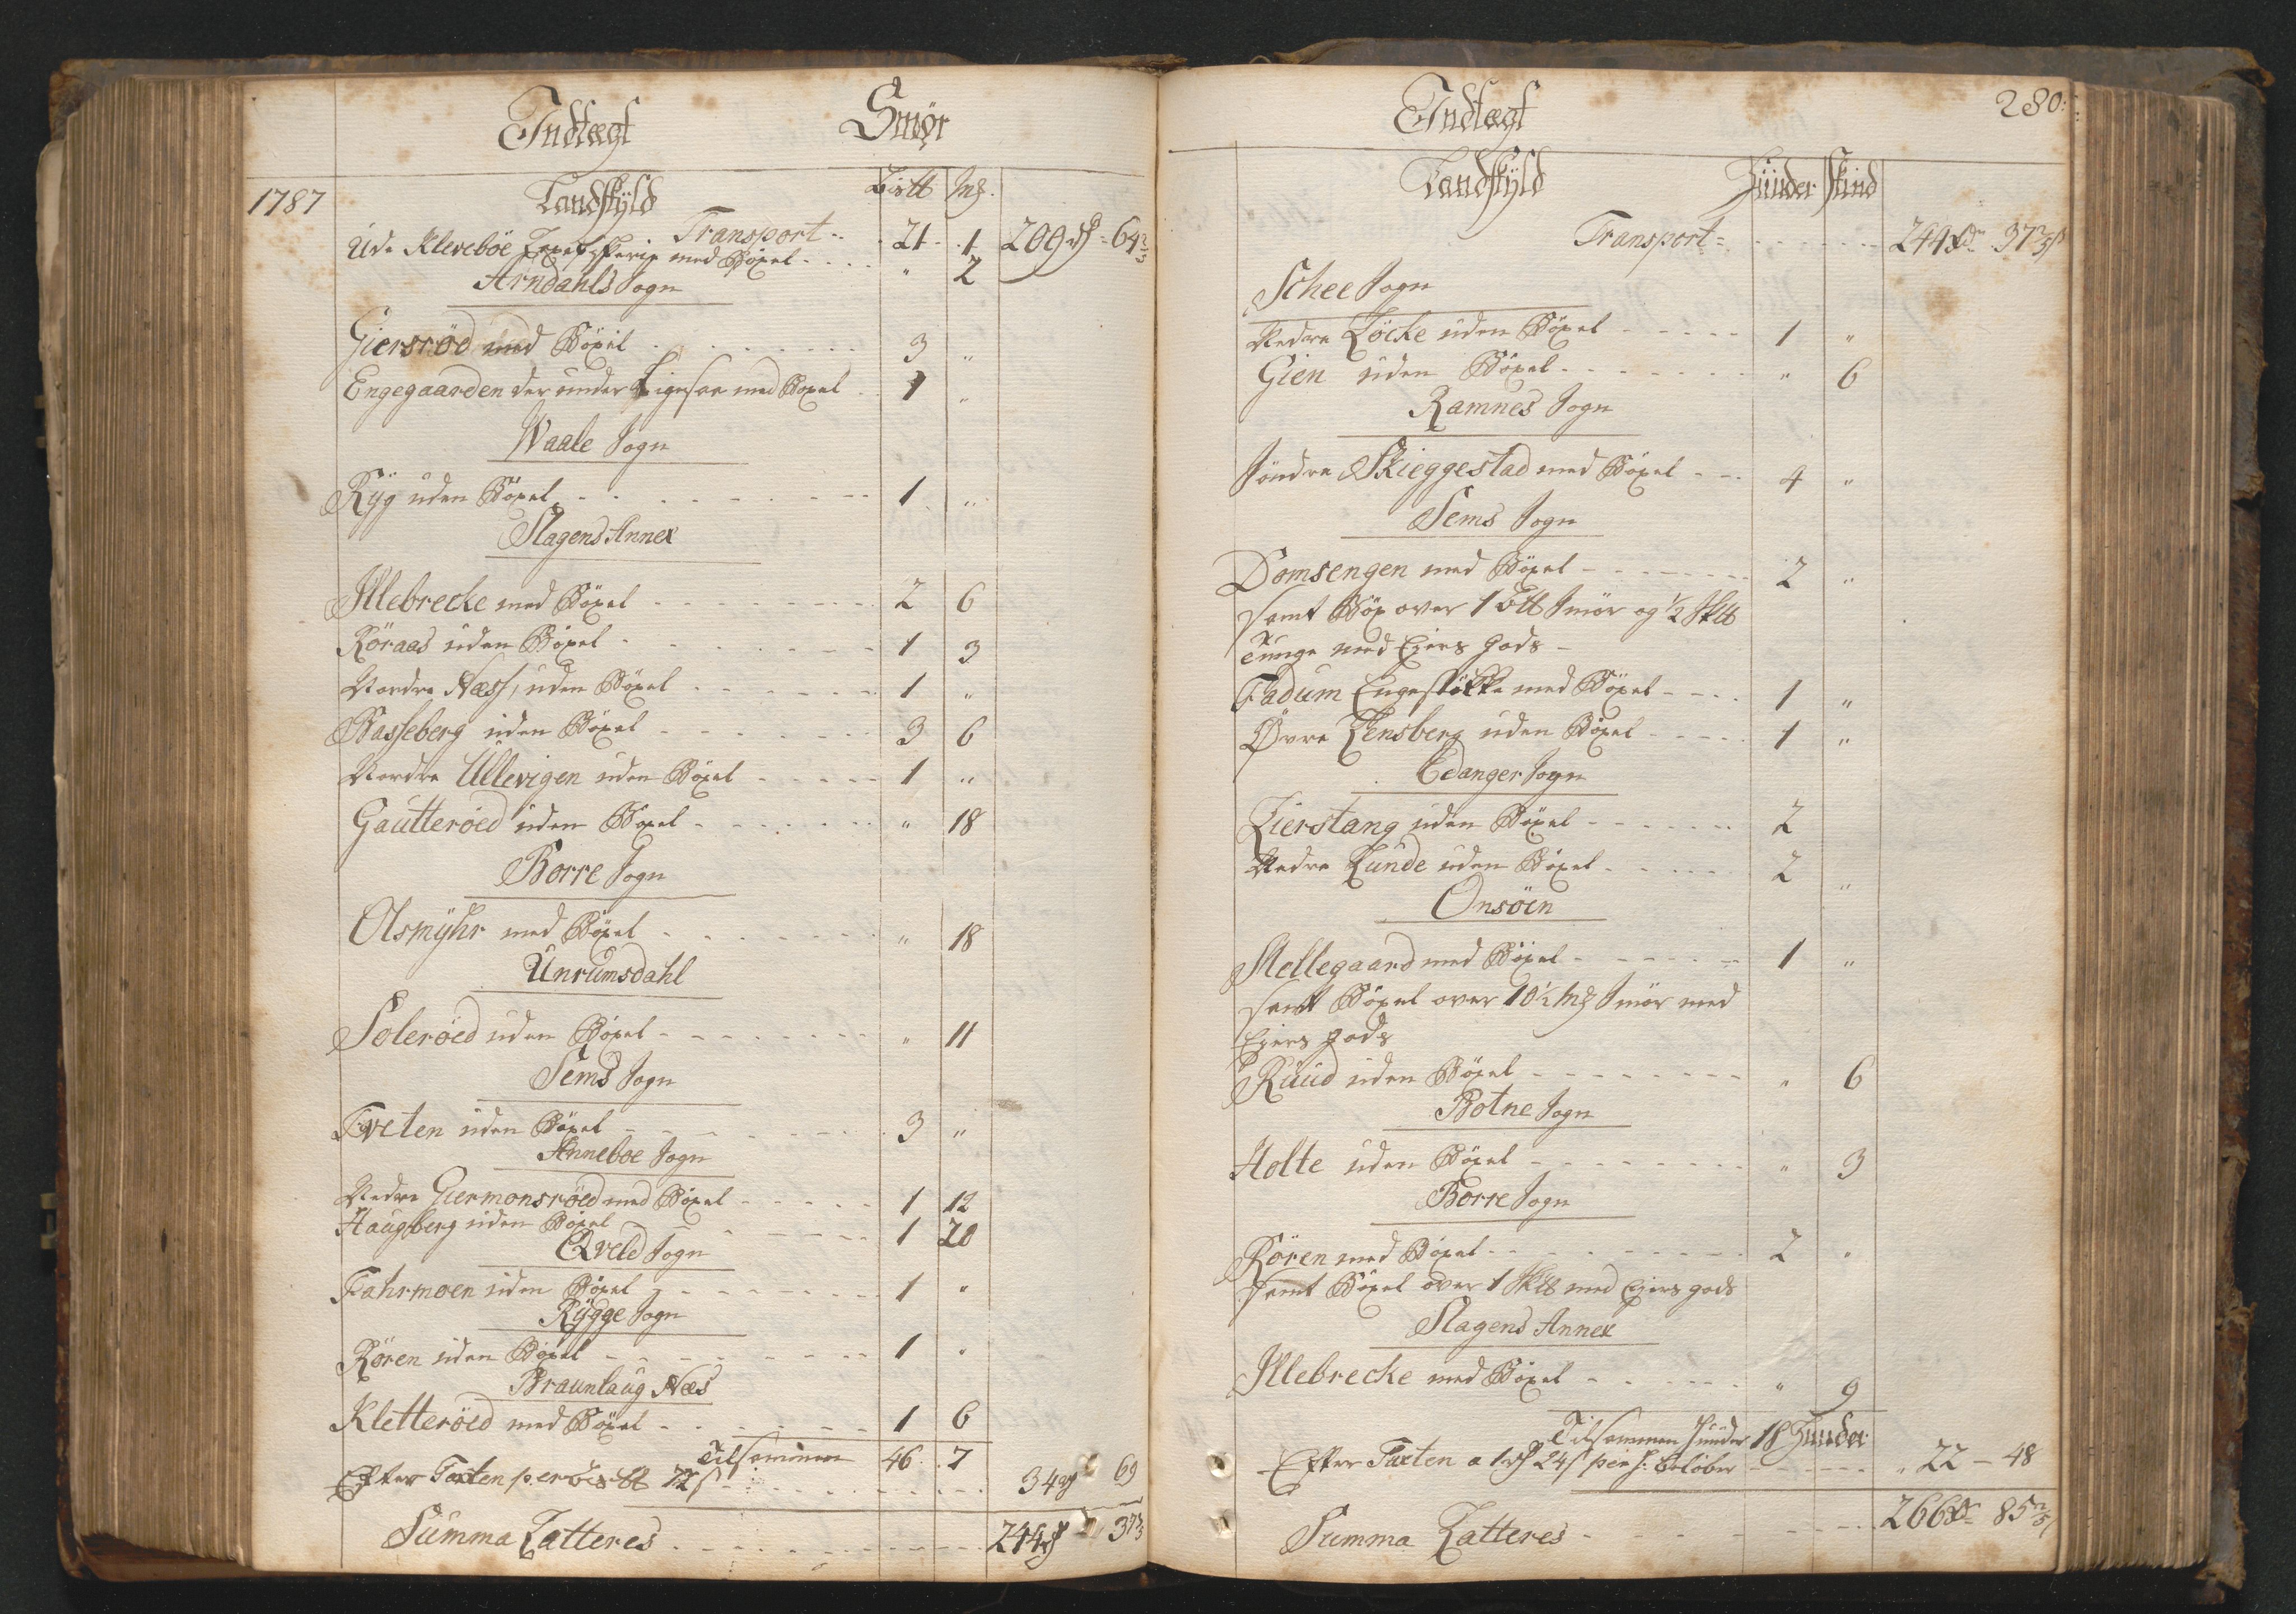 Indtægt Smør
1787 Landskyld Bistt Mk.
Transport 21 1 209 rd 64 2/5
Ude Klevebøe med Böxel " 2
Arndahls Sogn
Giersröd med Böxel 3 "
Engegaarden der under Ligesaa med Böxel 1 "
Waale Sogn
Ryg uden Böxel 1 "
Slagens Annex
Illebrecke med Böxel 2 6
Röraas uden Böxel 1 3
Nordre Næss, uden Böxel 1 "
Basseberg uden Böxel 3 6
Nordre Ullevigen uden Böxel 1 "
Gautteröed uden Böxel " 18
Borre Sogn
Olsmyhr med Böxel " 18
Unrumsdahl
Soleröed uden Böxel " 11
Sems Sogn
Tveten uden Böxel 3 "
Anneboe Sogn
Nedre Giermonsröed med Böxel 1 12
Haugberg uden Böxel 1 20
Qveld Sogn
Fahrmoen uden Böxel 1 "
Rygge Sogn
Rören uden Böxel 1 "
Braunlaug Næs
Kletteröed med Böxel 1 6
Tilsammen 46 7
Efter Taxten per Bistt 72 s 34 rd 69
Summa Latteres 244 rd 37 2/5
280
Indtægt
Landskyld Huuder Skind
Transport 244 rd 37 2/5 s
Schee Sogn
Nedre Löcke uden Böxel 1 "
Gien uden Böxel " 6
Ramnes Sogn
Söndre Skieggestad med Böxel 4 "
Sems Sogn
Domsengen med Böxel 2 "
samt Böx over 1 Smör og 1/2
Tunge med Eiers Gods
Fadum Engestökke med Böxel 1 "
Øvre Lensberg uden Böxel 1 "
Edanger Sogn
Lierstang uden Böxel 2
Nedre Lunde uden Böxel 2 "
Onsöen
Mellegaard med Böxel 1 "
samt Böxel over 10 1/2 Mk Smör med
Eiers Gods
Ruud uden Böxel " 6
Botne Sogn
Holte uden Böxel " 3
Borre Sogn
Rören med Böxel 2 "
samt Böxel over 1 med Eiers gods
Slagens Annex
Illebrecke med Böxel " 9
Tilsammen Huuder 18 Huuder
Efter Taxten a 1 rd 24 s beløber 22 - 48
Summa Latteres 266 rd 85 2/5 s